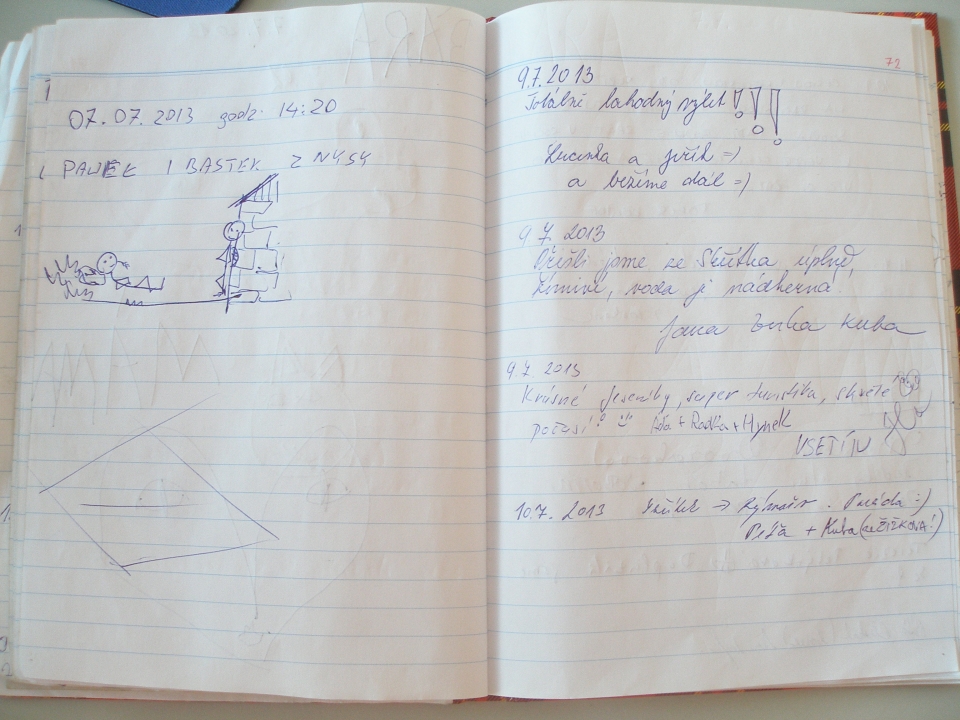 07.07.2013 godz. 14:20
PAWEŁ I BASTEK Z NYSY
72
9.7.2013
Totálně lahodný výlet !!!
Lucinka a Jiřík =)
a běžíme dál =)
9.7.2013
Přišli jsme ze Skřítka, úplně
voda je nádherná.
Jana Kuba
9.7.2013
Krásné Jeseníky, super turistika, skvělé
počasí! + Radka + Hynek
VSETÍN
10.7.2013 Skřítek → Rýmařov. Paráda :)
Péťa + Kuba